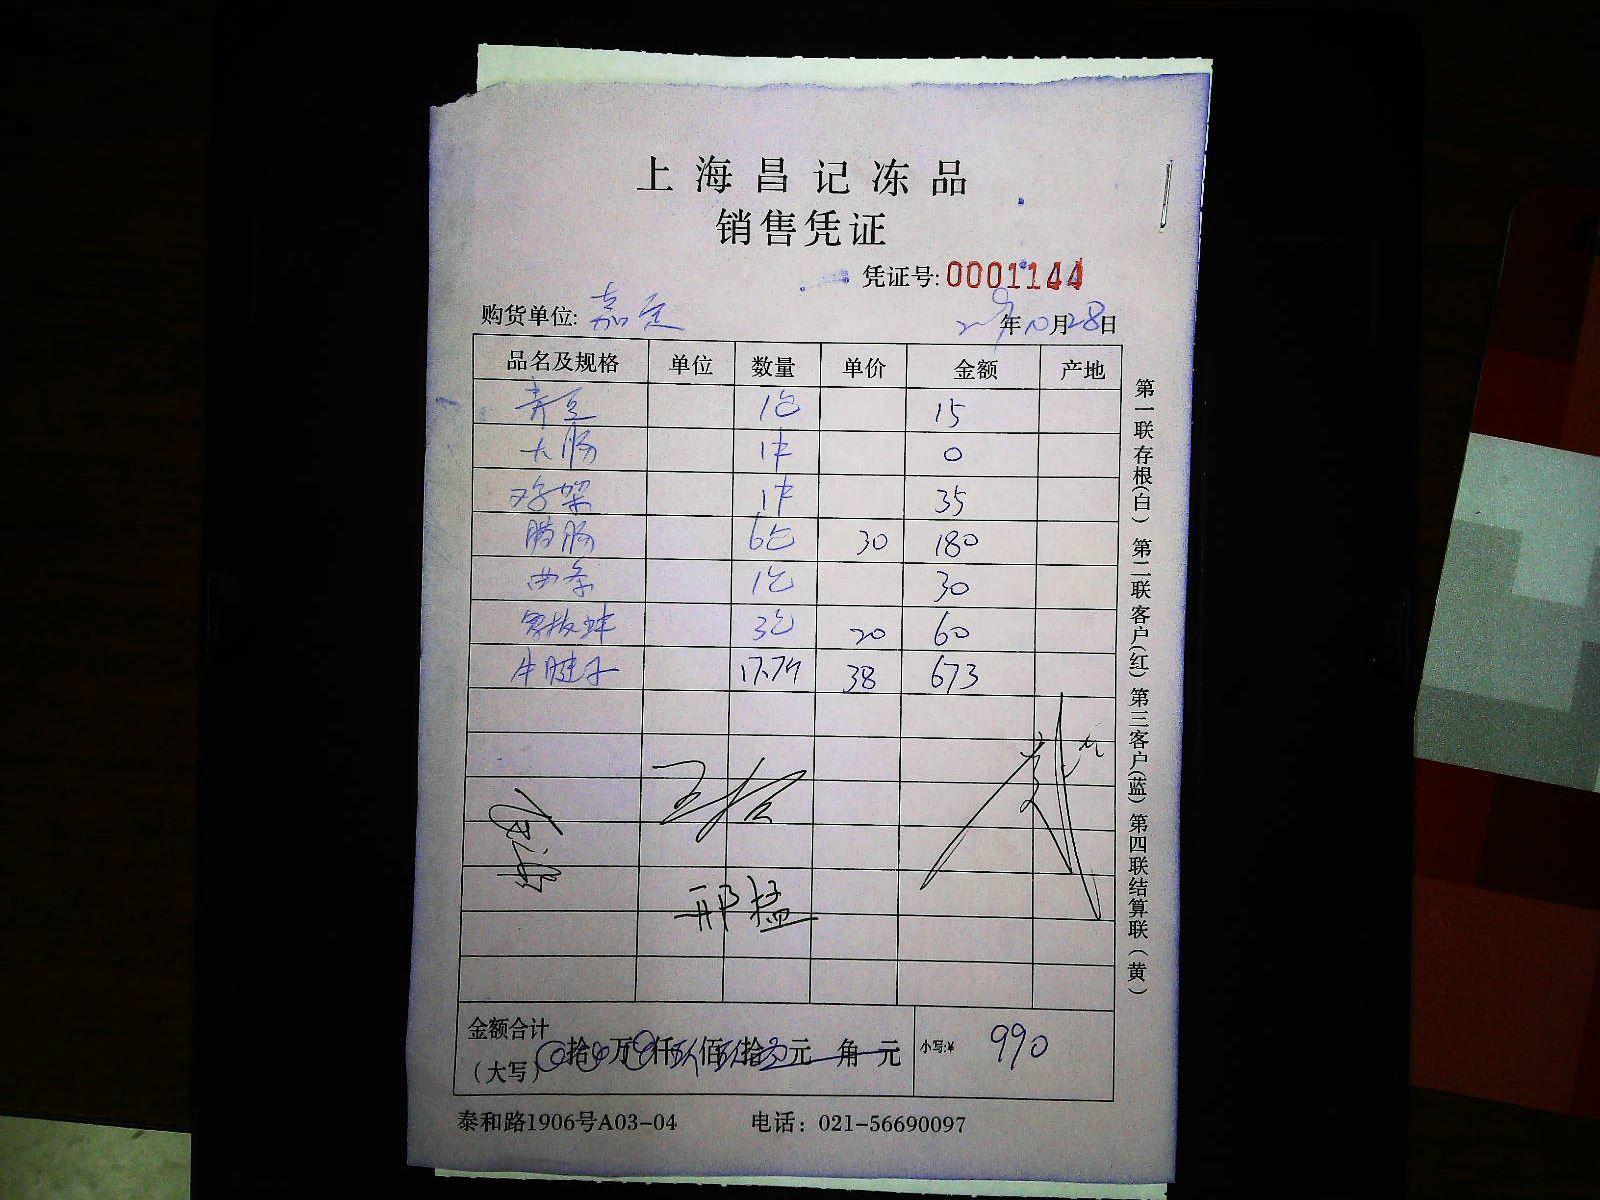 上海昌记冻品
销售凭证
凭证号: 0001144
购货单位: 嘉定 年10月28日
品名及规格 单位 数量 单价 金额 产地
青豆 1包 15
大肠 1件 0
鸡架 1件 35
腊肠 6包 30 180
曲条 1包 30
3包 20 60
牛腱子 17.7斤 38 673
王
邢猛
金额合计
(大写) 拾 万 仟 佰 拾 元 角 元 小写:¥ 990
泰和路1906号A03-04 电话: 021-56690097
第一联存根(白) 第二联客户(红) 第三客户(蓝) 第四联结算联(黄)